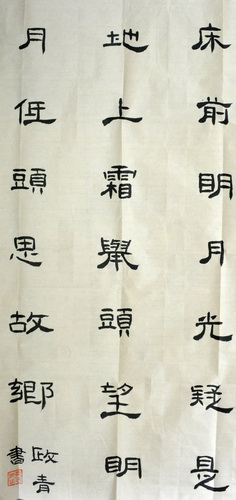 床前明月光疑是
地上霜舉頭望明
月低頭思故鄉
政青
書